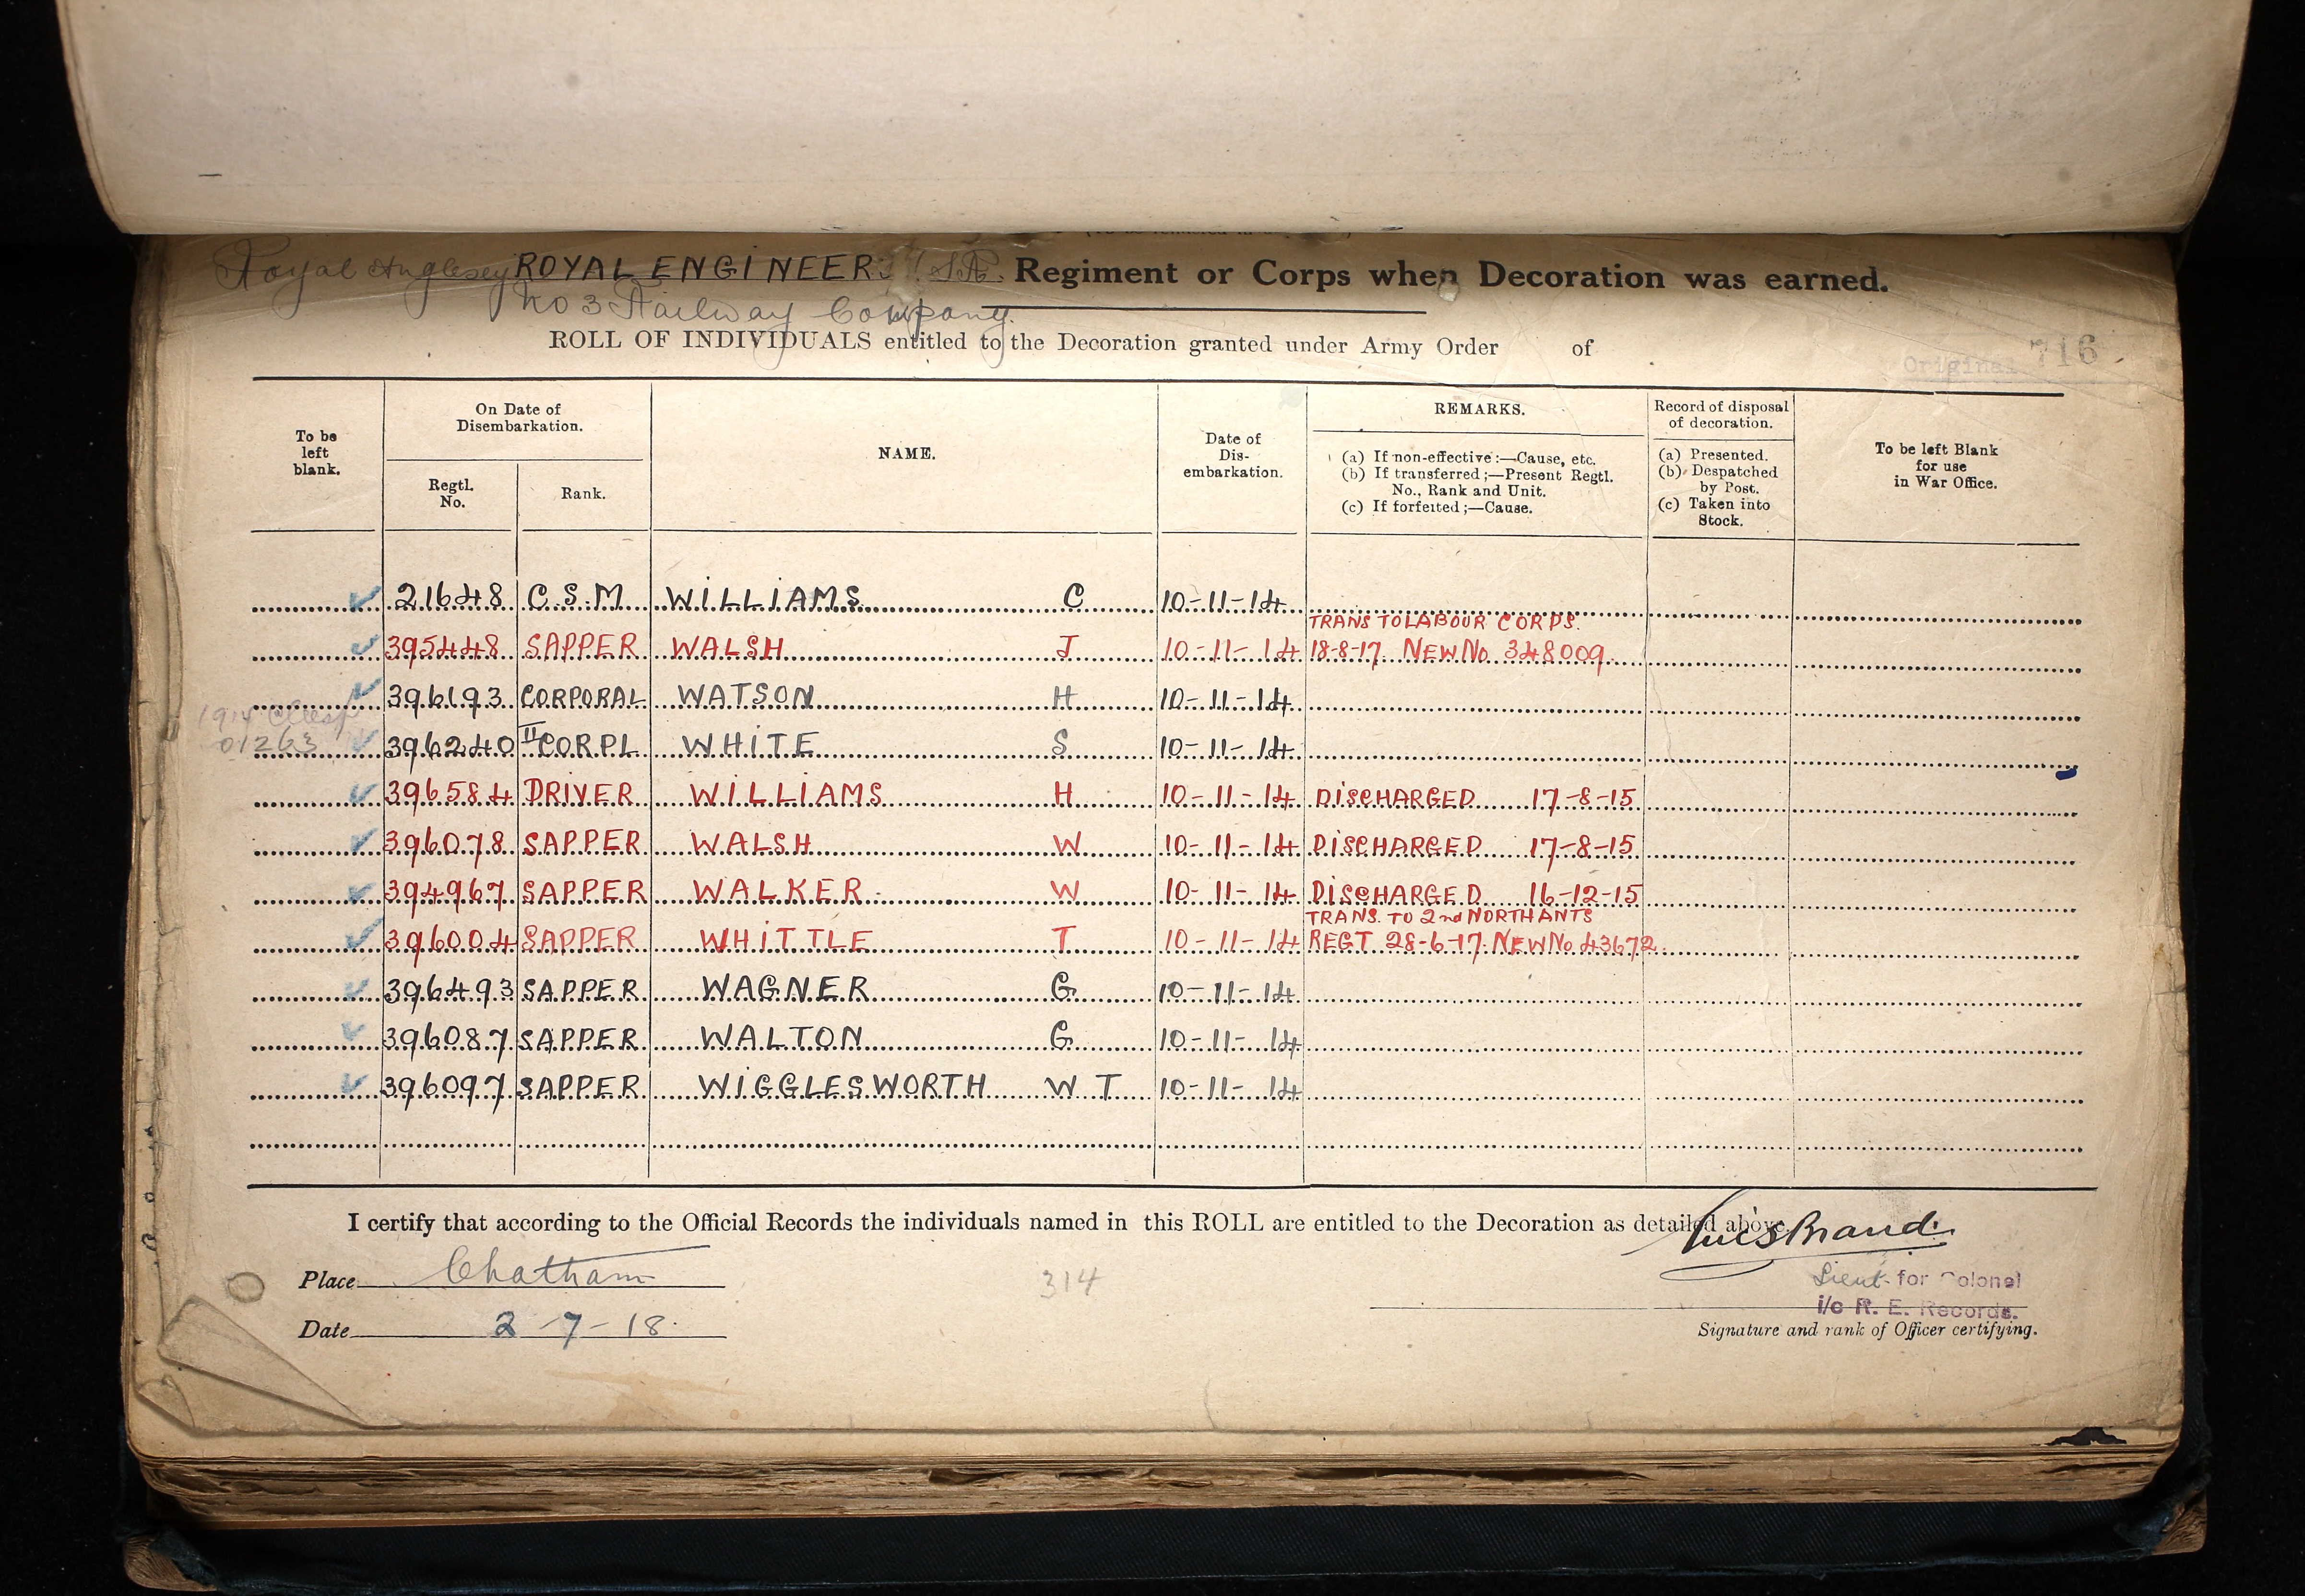 Royal Anglesey ROYAL ENGINEERS. Regiment or Corps when Decoration was earned.
No 3 Railway Company.
ROLL OF INDIVIDUALS entitled to the Decoration granted under Army Order of
Original 716
To be left blank.
On Date of Disembarkation.
Regtl. No.
Rank.
NAME.
Date of Dis-embarkation.
REMARKS.
(a) If non-effective:—Cause, etc.
(b) If transferred;—Present Regtl. No., Rank and Unit.
(c) If forfeited;—Cause.
Record of disposal of decoration.
(a) Presented.
(b) Despatched by Post.
(c) Taken into Stock.
To be left Blank for use in War Office.
21648 C.S.M. WILLIAMS C 10-11-14
TRANS TO LABOUR CORPS.
395448 SAPPER WALSH J 10-11-14 18-8-17. NEW No 348009.
396193 CORPORAL WATSON H 10-11-14
1914 Clasp
01263 396240 II CORPL WHITE S 10-11-14
396584 DRIVER WILLIAMS H 10-11-14 DISCHARGED 17-8-15
396078 SAPPER WALSH W 10-11-14 DISCHARGED 17-8-15
394967 SAPPER WALKER W 10-11-14 DISCHARGED 16-12-15
TRANS. TO 2nd NORTHANTS
396004 SAPPER WHITTLE T 10-11-14 REGT 28-6-17. NEW No 43672.
396493 SAPPER WAGNER G 10-11-14
396087 SAPPER WALTON G 10-11-14
396097 SAPPER WIGGLESWORTH W T 10-11-14
I certify that according to the Official Records the individuals named in this ROLL are entitled to the Decoration as detailed above.
Brand
Place Chatham
314
Lieut. for Colonel
i/c R. E. Records.
Date 2-7-18.
Signature and rank of Officer certifying.